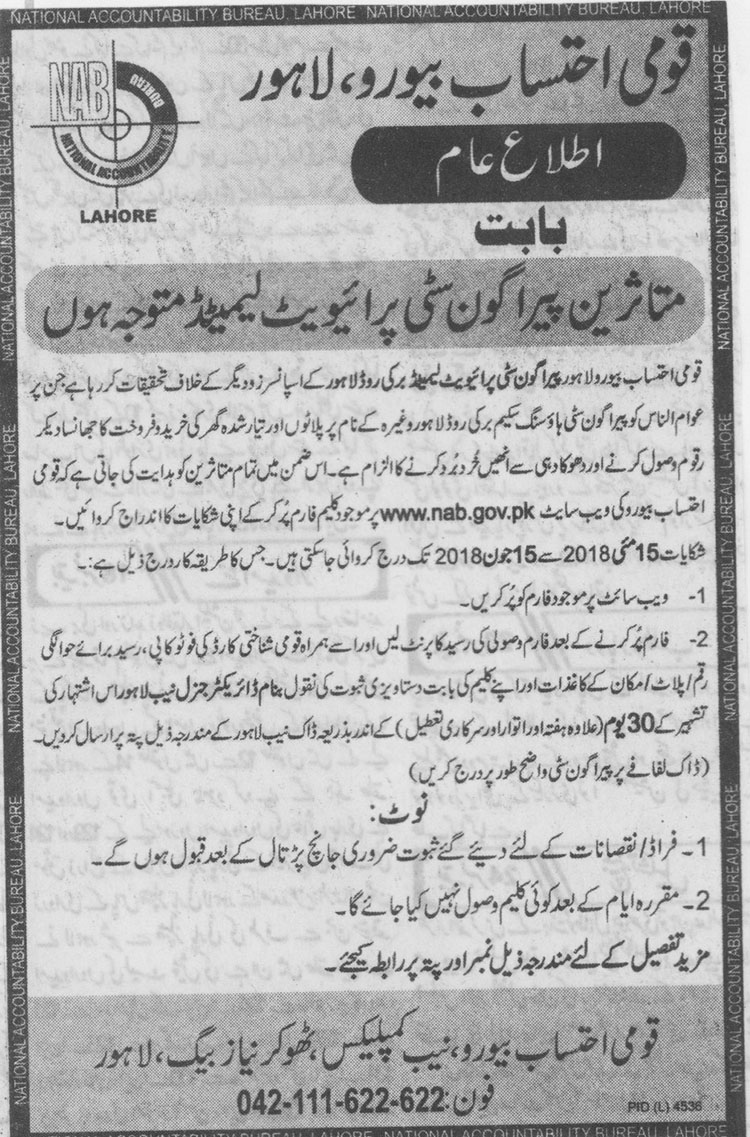 NATIONAL ACCOUNTABILITY BUREAU, LAHORE NATIONAL ACCOUNTABILITY BUREAU, LAHORE
NAB
NATIONAL ACCOUNTABILITY BUREAU
LAHORE
قومی احتساب بیورو، لاہور
اطلاع عام
بابت
متاثرین پیراگون سٹی پرائیویٹ لیمیٹڈ متوجہ ہوں
قومی احتساب بیورو لاہور پیراگون سٹی پرائیویٹ لیمیٹڈ برکی روڈ لاہور کے اسپانسرز و دیگر کے خلاف تحقیقات کر رہا ہے جن پر
عوام الناس کو پیراگون سٹی ہاؤسنگ سکیم برکی روڈ لاہور وغیرہ کے نام پر پلاٹوں اور تیار شدہ گھر کی خرید و فروخت کا جھانسا دیکر
رقوم وصول کرنے اور دھوکا دہی سے انھیں خُرد بُرد کرنے کا الزام ہے۔ اس ضمن میں تمام متاثرین کو ہدایت کی جاتی ہے کہ قومی
احتساب بیورو کی ویب سایٹ www.nab.gov.pk پر موجود کلیم فارم پُر کر کے اپنی شکایات کا اندراج کروائیں۔
شکایات 15 مئی 2018 سے 15 جون 2018 تک درج کروائی جاسکتی ہیں۔ جس کا طریقہ کار درج ذیل ہے:۔
1- ویب سائٹ پر موجود فارم کو پُر کریں۔
2- فارم پُر کرنے کے بعد فارم وصولی کی رسید کا پرنٹ لیں اور اسے ہمراہ قومی شناختی کارڈ کی فوٹو کاپی، رسید برائے حوالگی
رقم/پلاٹ/مکان کے کاغذات اور اپنے کلیم کی بابت دستاویزی ثبوت کی نقول بنام ڈائریکٹر جنرل نیب لاہور اس اشتہار کی
تشہیر کے 30 یوم (علاوہ ہفتہ اور اتوار اور سرکاری تعطیل) کے اندر بذریعہ ڈاک نیب لاہور کے مندرجہ ذیل پتہ پر ارسال کردیں۔
(ڈاک لفافے پر پیراگون سٹی واضح طور پر درج کریں)
نوٹ:
1۔ فراڈ/نقصانات کے لئے دیئے گئے ثبوت ضروری جانچ پڑتال کے بعد قبول ہوں گے۔
2۔ مقررہ ایام کے بعد کوئی کلیم وصول نہیں کیا جائے گا۔
مزید تفصیل کے لئے مندرجہ ذیل نمبر اور پتہ پر رابطہ کیجئے۔
قومی احتساب بیورو، نیب کمپلیکس، ٹھوکر نیاز بیگ، لاہور
فون: 042-111-622-622
PID (L) 4536